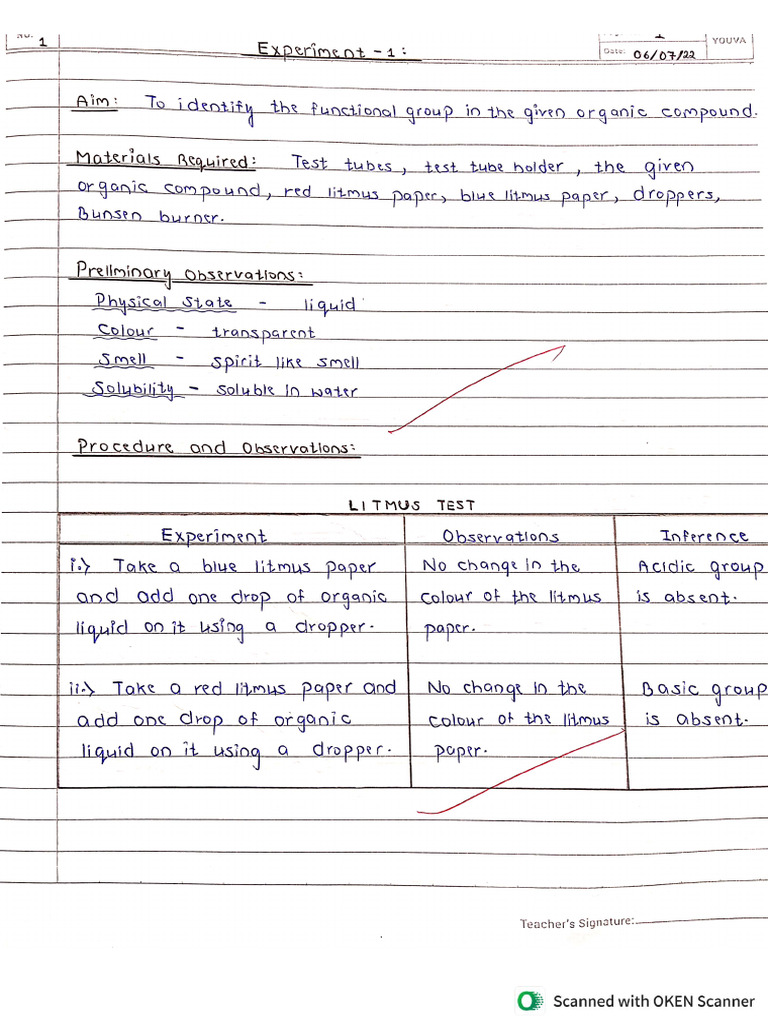 No. 1
Experiment - 1 :
1
YOUVA
Date: 06/07/22
Aim: To identify the functional group in the given organic compound.
Materials Required: Test tubes, test tube holder, the given
organic compound, red litmus paper, blue litmus paper, droppers,
Bunsen burner.
Preliminary Observations:
Physical State - liquid
Colour - transparent
Smell - spirit like smell
Solubility - soluble in water
Procedure and Observations:
LITMUS TEST
Experiment Observations Inference
i.) Take a blue litmus paper No change in the Acidic group
and add one drop of organic colour of the litmus is absent.
liquid on it using a dropper. paper.
ii.) Take a red litmus paper and No change in the Basic group
add one drop of organic colour of the litmus is absent.
liquid on it using a dropper. paper.
Teacher's Signature:
Scanned with OKEN Scanner